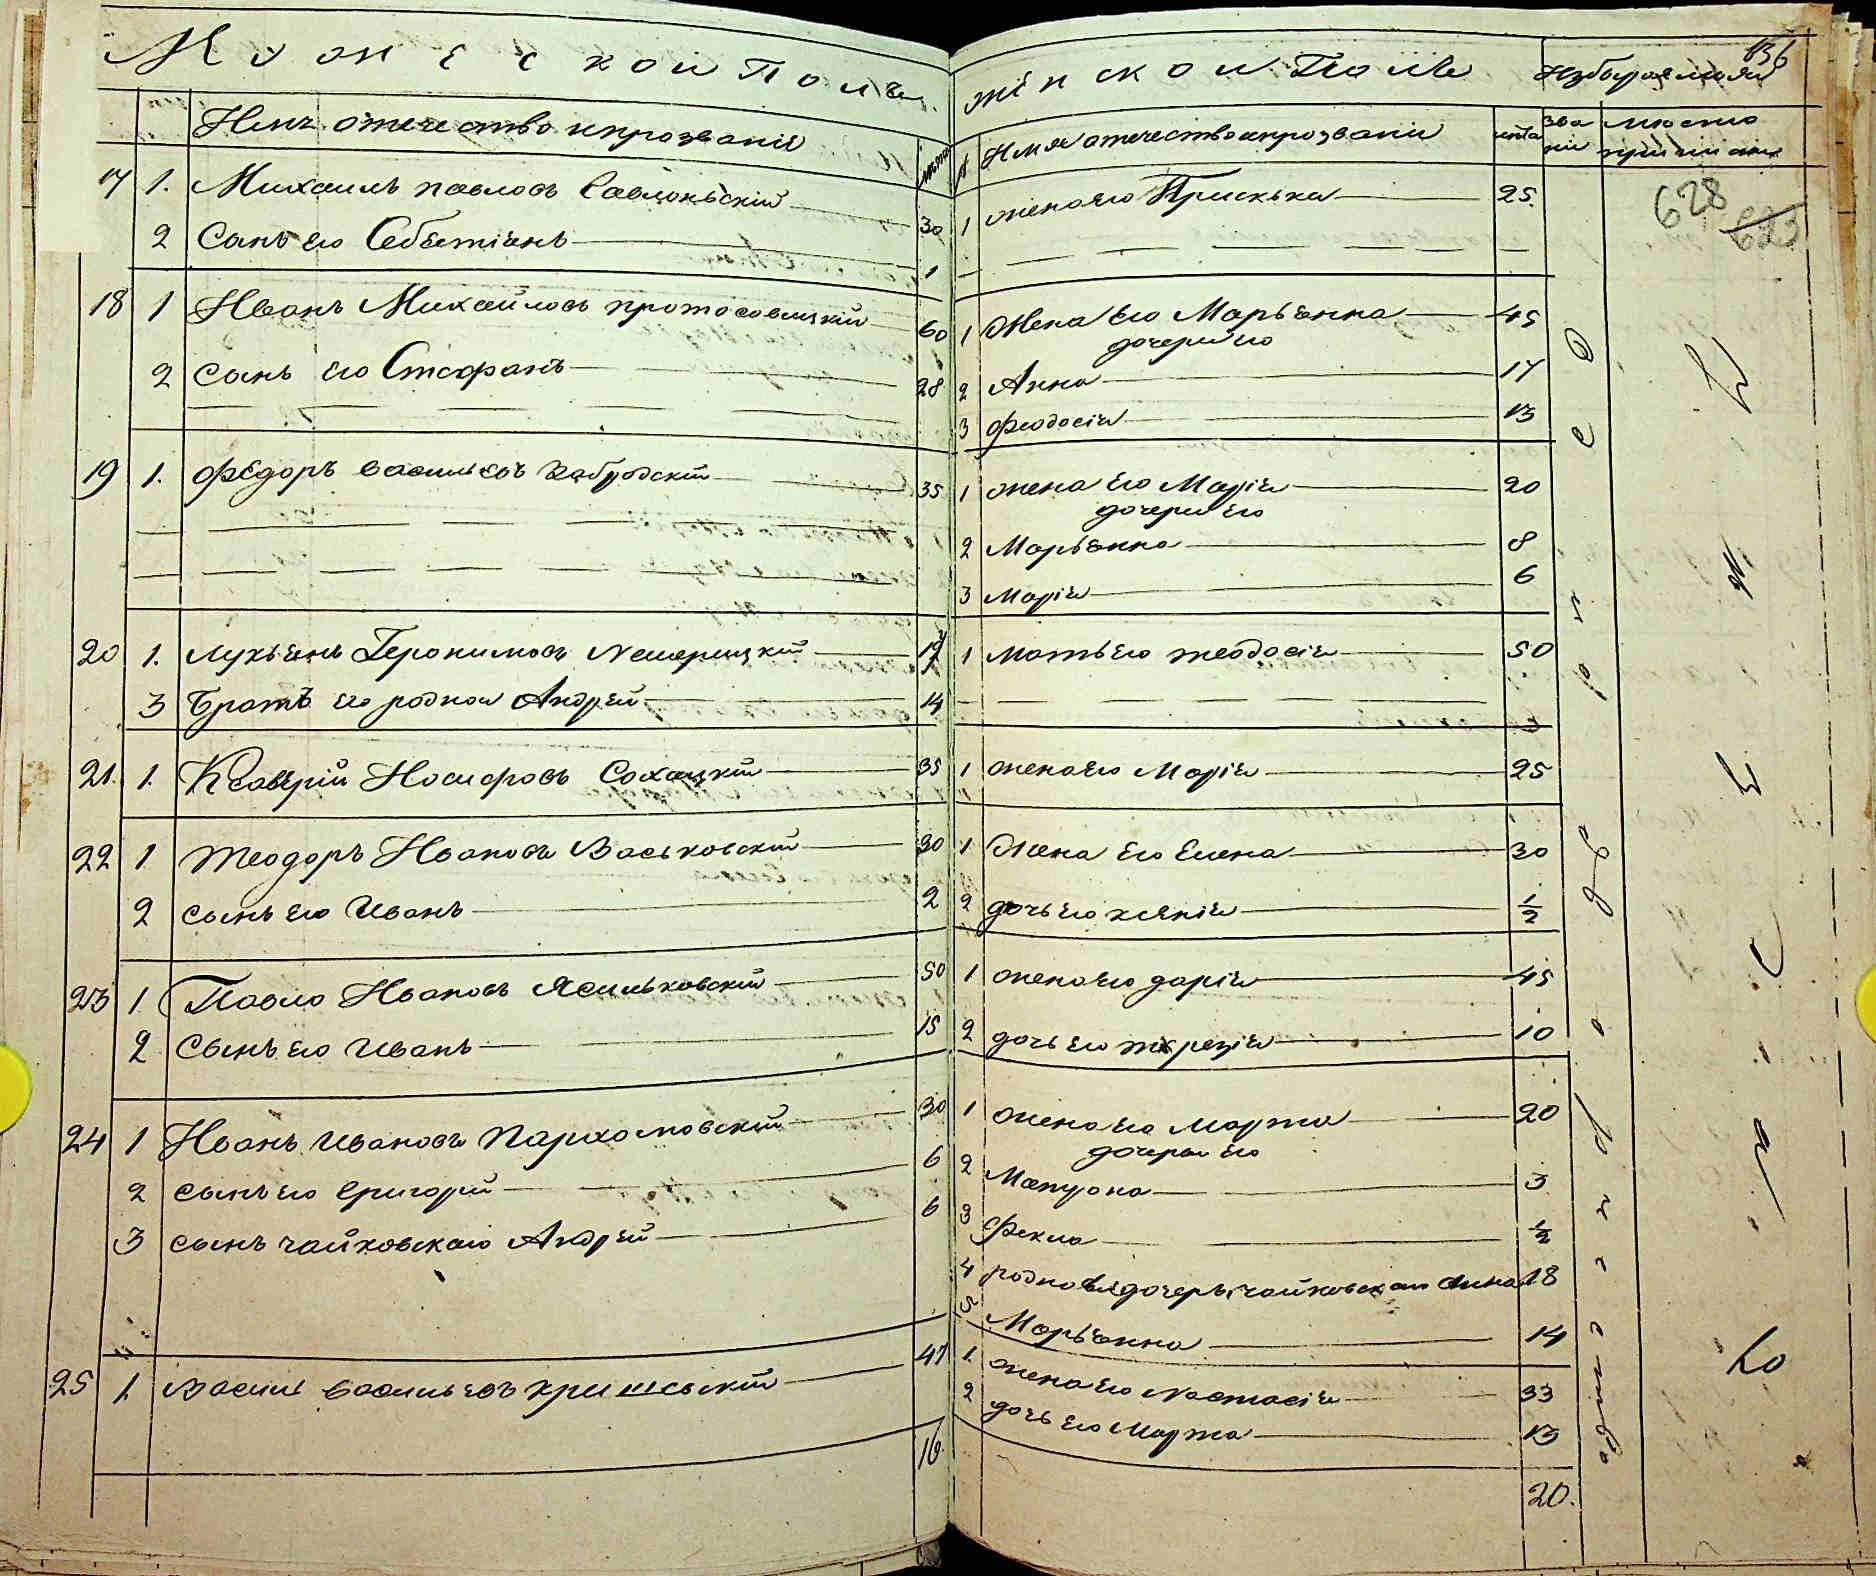 Мужеской Полъ
Имя отечество и прозваніе
лѣта
17 1. Михаилъ павловъ 30
2 Сынъ его 1
18 1 Иванъ Михайловъ протосовицкій 60
2 сынъ его Стефанъ 28
19 1. Федоръ васильевъ Забродскій 35
20 1. Лукьянъ Іеронимовъ 19
3 братъ его родной Андрей 14
21. 1. Ксаверій Іосифовъ Сохацкій 35
22 1 Теодоръ Ивановъ Васьковскій 30
2 сынъ его Иванъ 2
23 1 Павло Ивановъ Ясильковскій 50
2 Сынъ его Иванъ 15
24 1 Иванъ Ивановъ Пархомовскій 30
2 сынъ его Григорій 6
3 сынъ чайковскаго Андрей 6
25 1. Васили васильевъ 41
16
женской Полъ
136
Избираемый
№ Имя отечество и прозваніе лѣта
званіе
место приписки
628
623
1 жена его Приська 25.
1 Жена Его Марьянна 45
дочери его
2 Анна 17
3 Феодосія 13
1 жена его Марія 20
дочери его
2 Марьянна 8
3 Марія 6
1 мать его теодосія 50
1 жена его Марія 25
1 Жена Его Елена 30
2 дочь его ксенія 1/2
1 жена его дарія 45
2 дочь его терезія 10
1 жена его марта 20
дочери его
2 Матрона 3
3 Фекла 1/2
4 чайковская Анна 18
5 Марьянна 14
1. жена его Настасія 33
2 дочь его Марта 13
20.